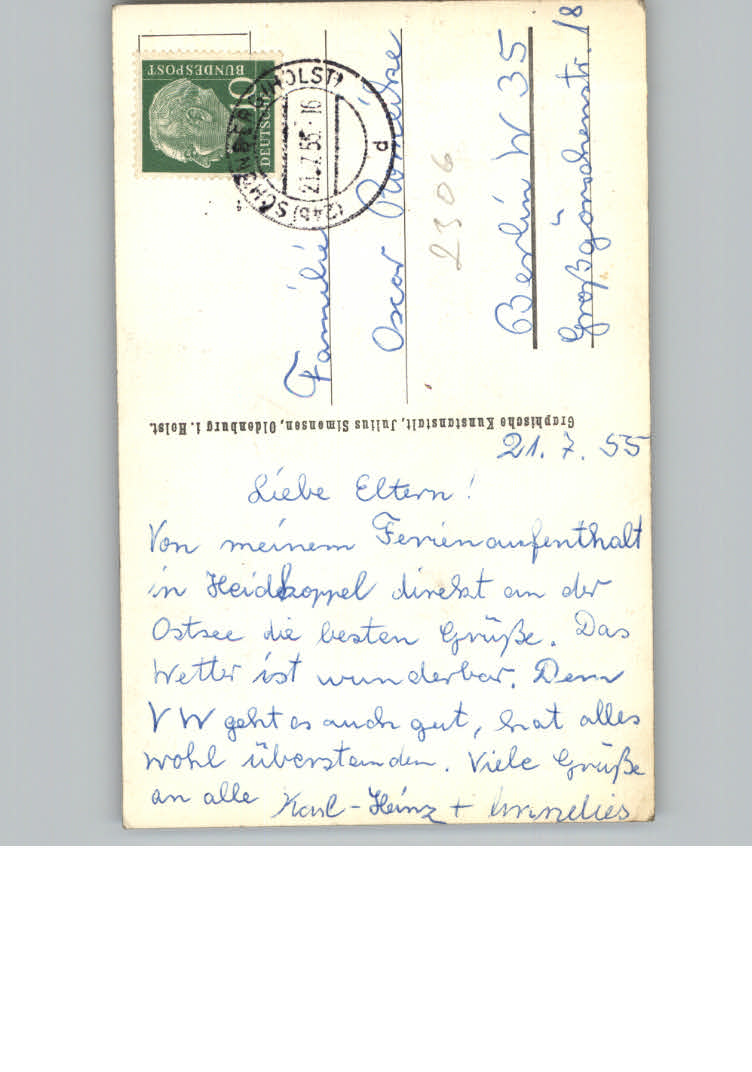 21. 7. 55
Liebe Eltern!
Von meinem Ferienaufenthalt
in Heidkoppel direkt an der
Ostsee die besten Grüße. Das
Wetter ist wunderbar. Dem
VW geht es auch gut, hat alles
wohl überstanden. Viele Grüße
an alle Karl-Heinz + Annelies
Graphische Kunstanstalt, Julius Simonsen, Oldenburg i. Holst.
Familie
Oscar
2306
Berlin W 35
Großgörschenstr. 18
DEUTSCHE
BUNDESPOST
10
(24b) SCHÖNBERG (HOLST)
21.7.55.-16
d